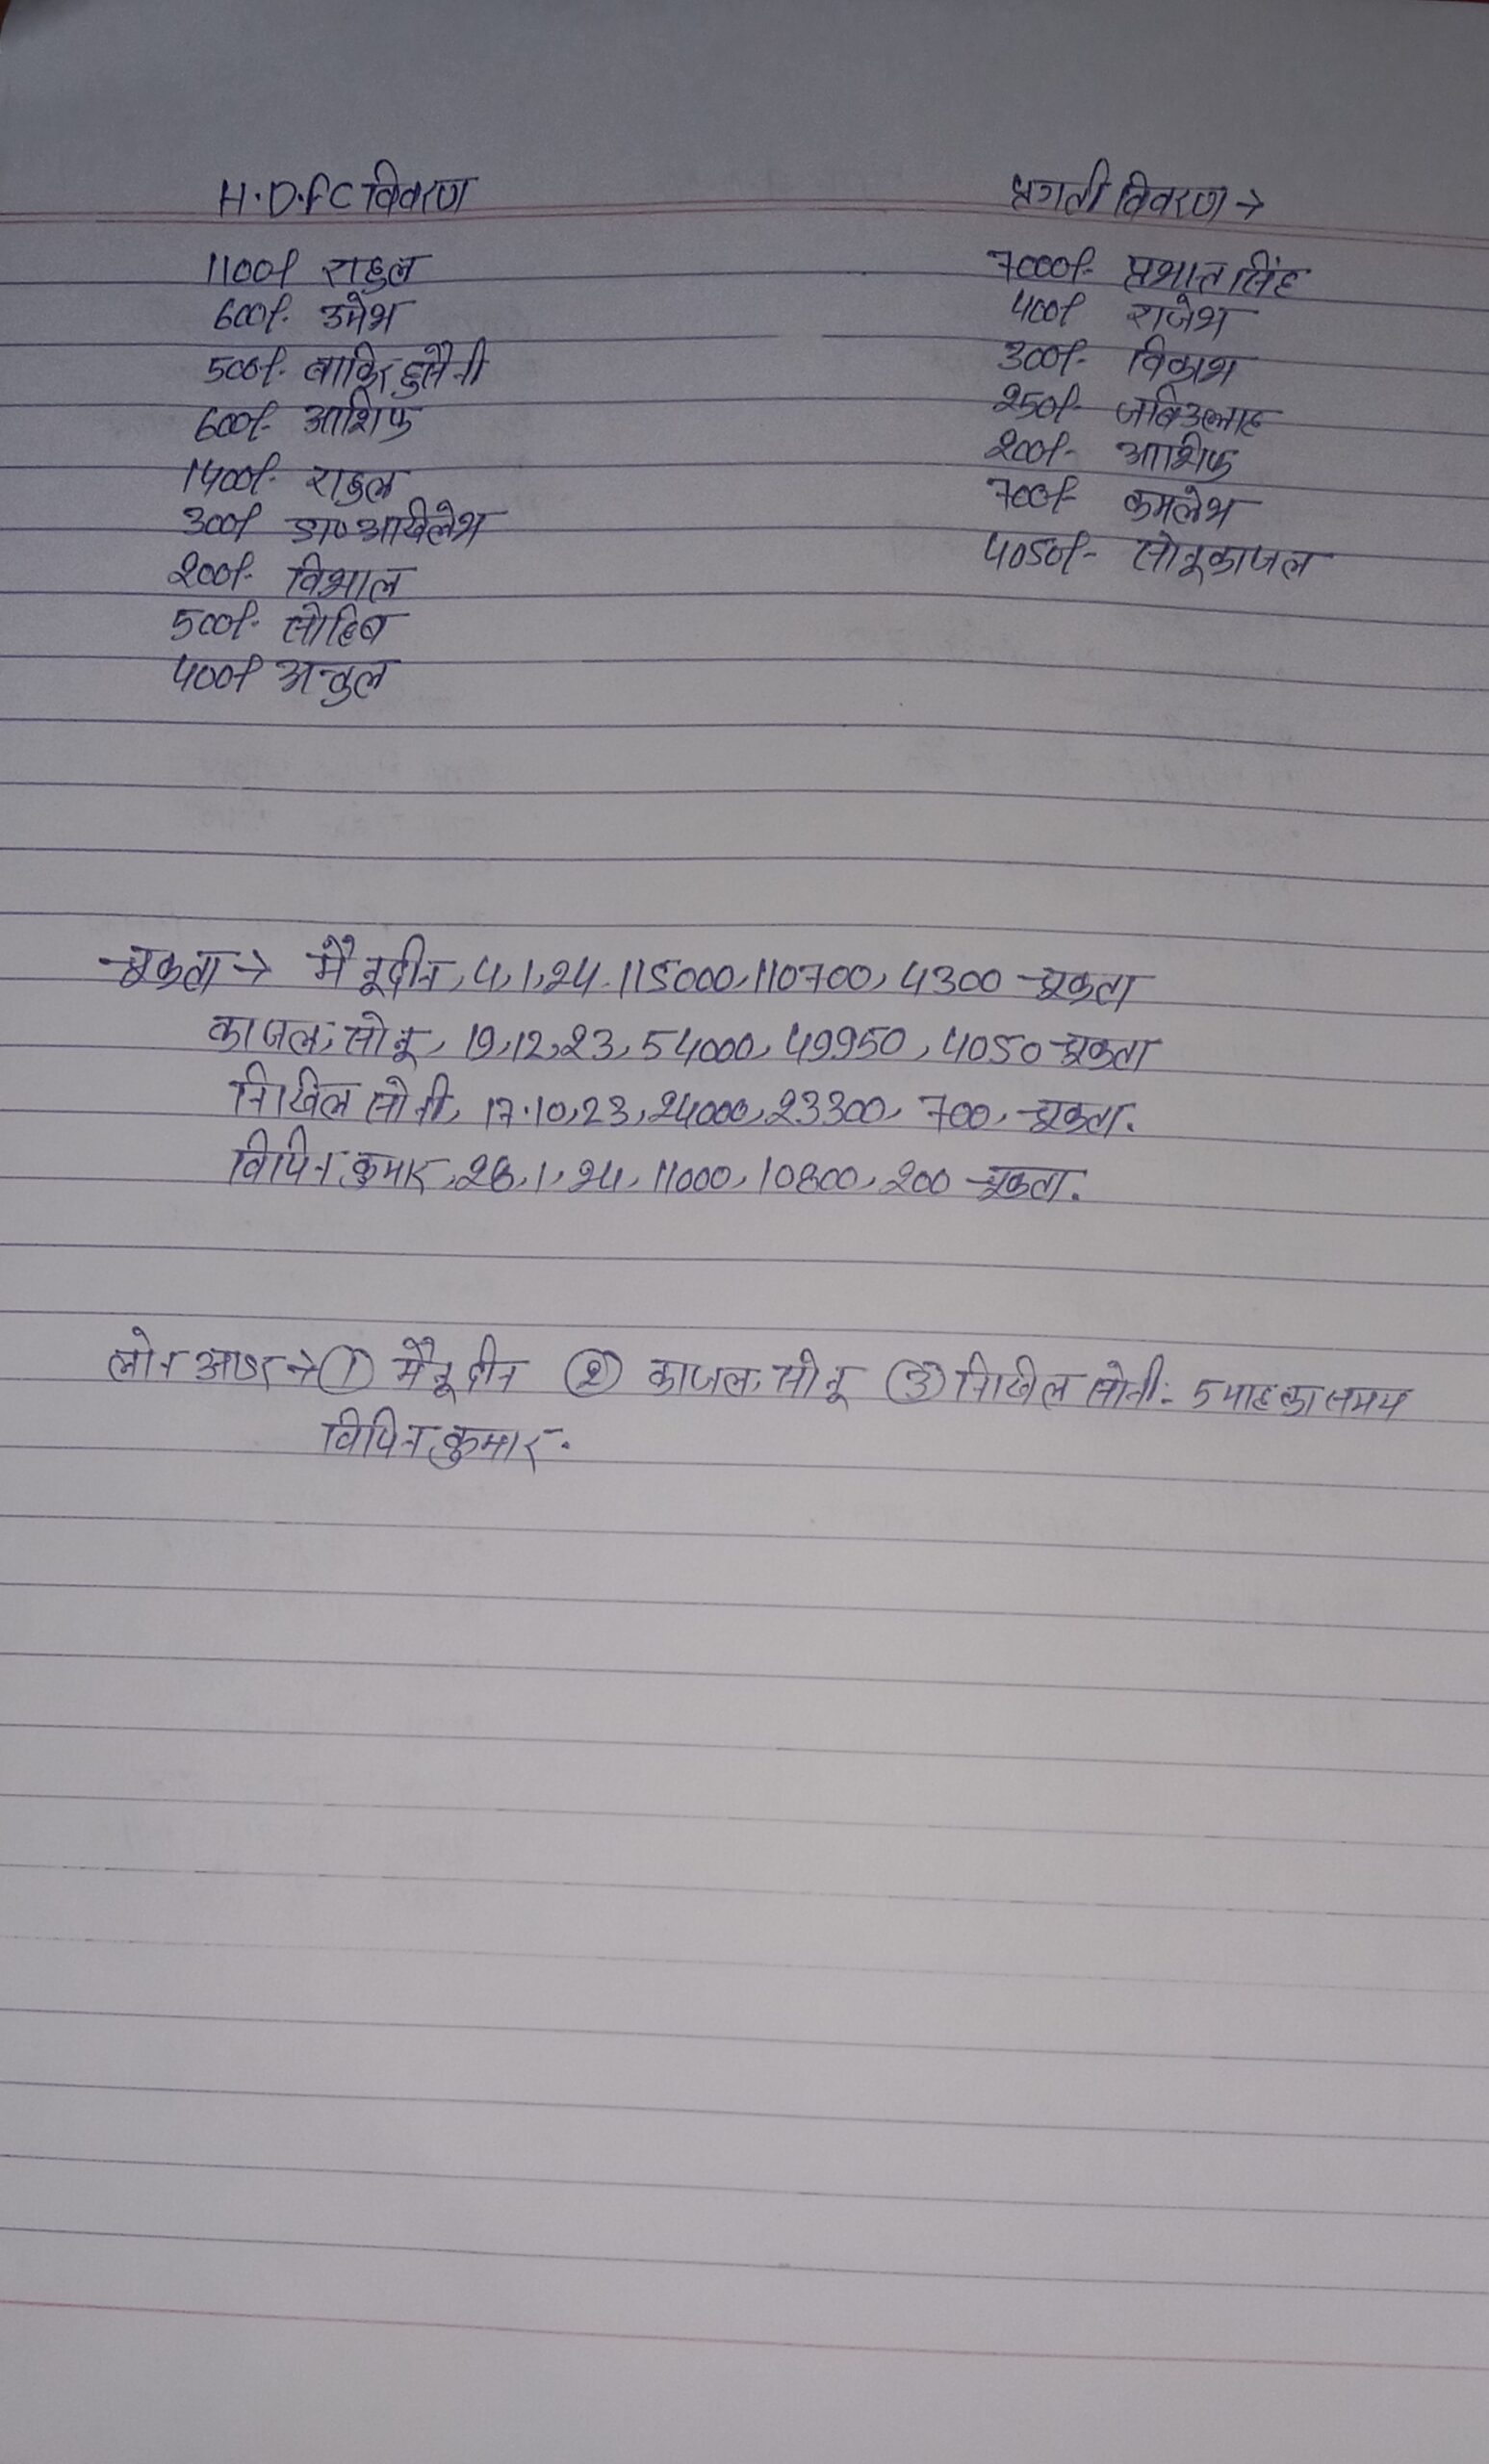 H.D.FC विवरण
1100/ राहुल
600/- उमेश
500/- बाकिर हुसैनी
600/- आशिफ
1400/- राहुल
300/ डा० अखिलेश
200/- विशाल
500/- सोहिब
400/ अन्कुल
प्रगती विवरण →
7000/- प्रभात सिंह
400/ राजेश
300/- विकाश
250/- जबिउल्लाह
200/- आशिफ
700/- कमलेश
4050/- सोनू काजल
चुकता → मैनूदीन, 4,1,24. 115000, 110700, 4300 चुकता
काजल, सोनू, 19,12,23, 54000, 49950, 4050 चुकता
निखिल सोनी, 17.10,23, 24000, 23300, 700, चुकता.
विपिन कुमार, 26,1,24, 11000, 10800, 200 चुकता.
लोन → ① मैनूदीन ② काजल, सोनू ③ निखिल सोनी:- 5 माह का समय
विपिन कुमार.